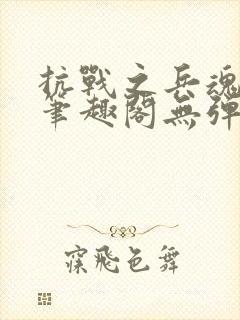 抗戰之兵魂
筆趣閣無彈
寐飛色舞